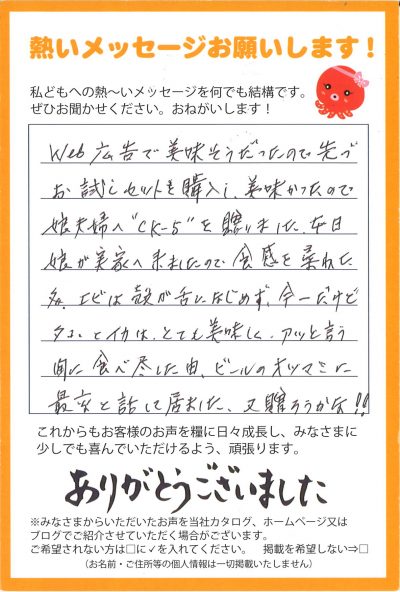 熱いメッセージお願いします！
私どもへの熱〜いメッセージを何でも結構です。
ぜひお聞かせください。おねがいします！
Web広告で美味そうだったので先づ
お試しセットを購入し、美味かったので
娘夫婦へ"CK-5"を贈りました。本日
娘が実家へ来ましたので食感を尋ねた
処、エビは殻が舌になじめず、今一だけど
タコとイカは、とても美味しく、アッと言う
間に食べ尽した由、ビールのオツマミに
最高と話して居ました、又贈ろうかな!!
これからもお客様のお声を糧に日々成長し、みなさまに
少しでも喜んでいただけるよう、頑張ります。
ありがとうございました
※みなさまからいただいたお声を当社カタログ、ホームページ又は
ブログでご紹介させていただく場合がございます。
ご希望されない方は□に✓を入れてください。 掲載を希望しない⇒□
（お名前・ご住所等の個人情報は一切掲載いたしません）